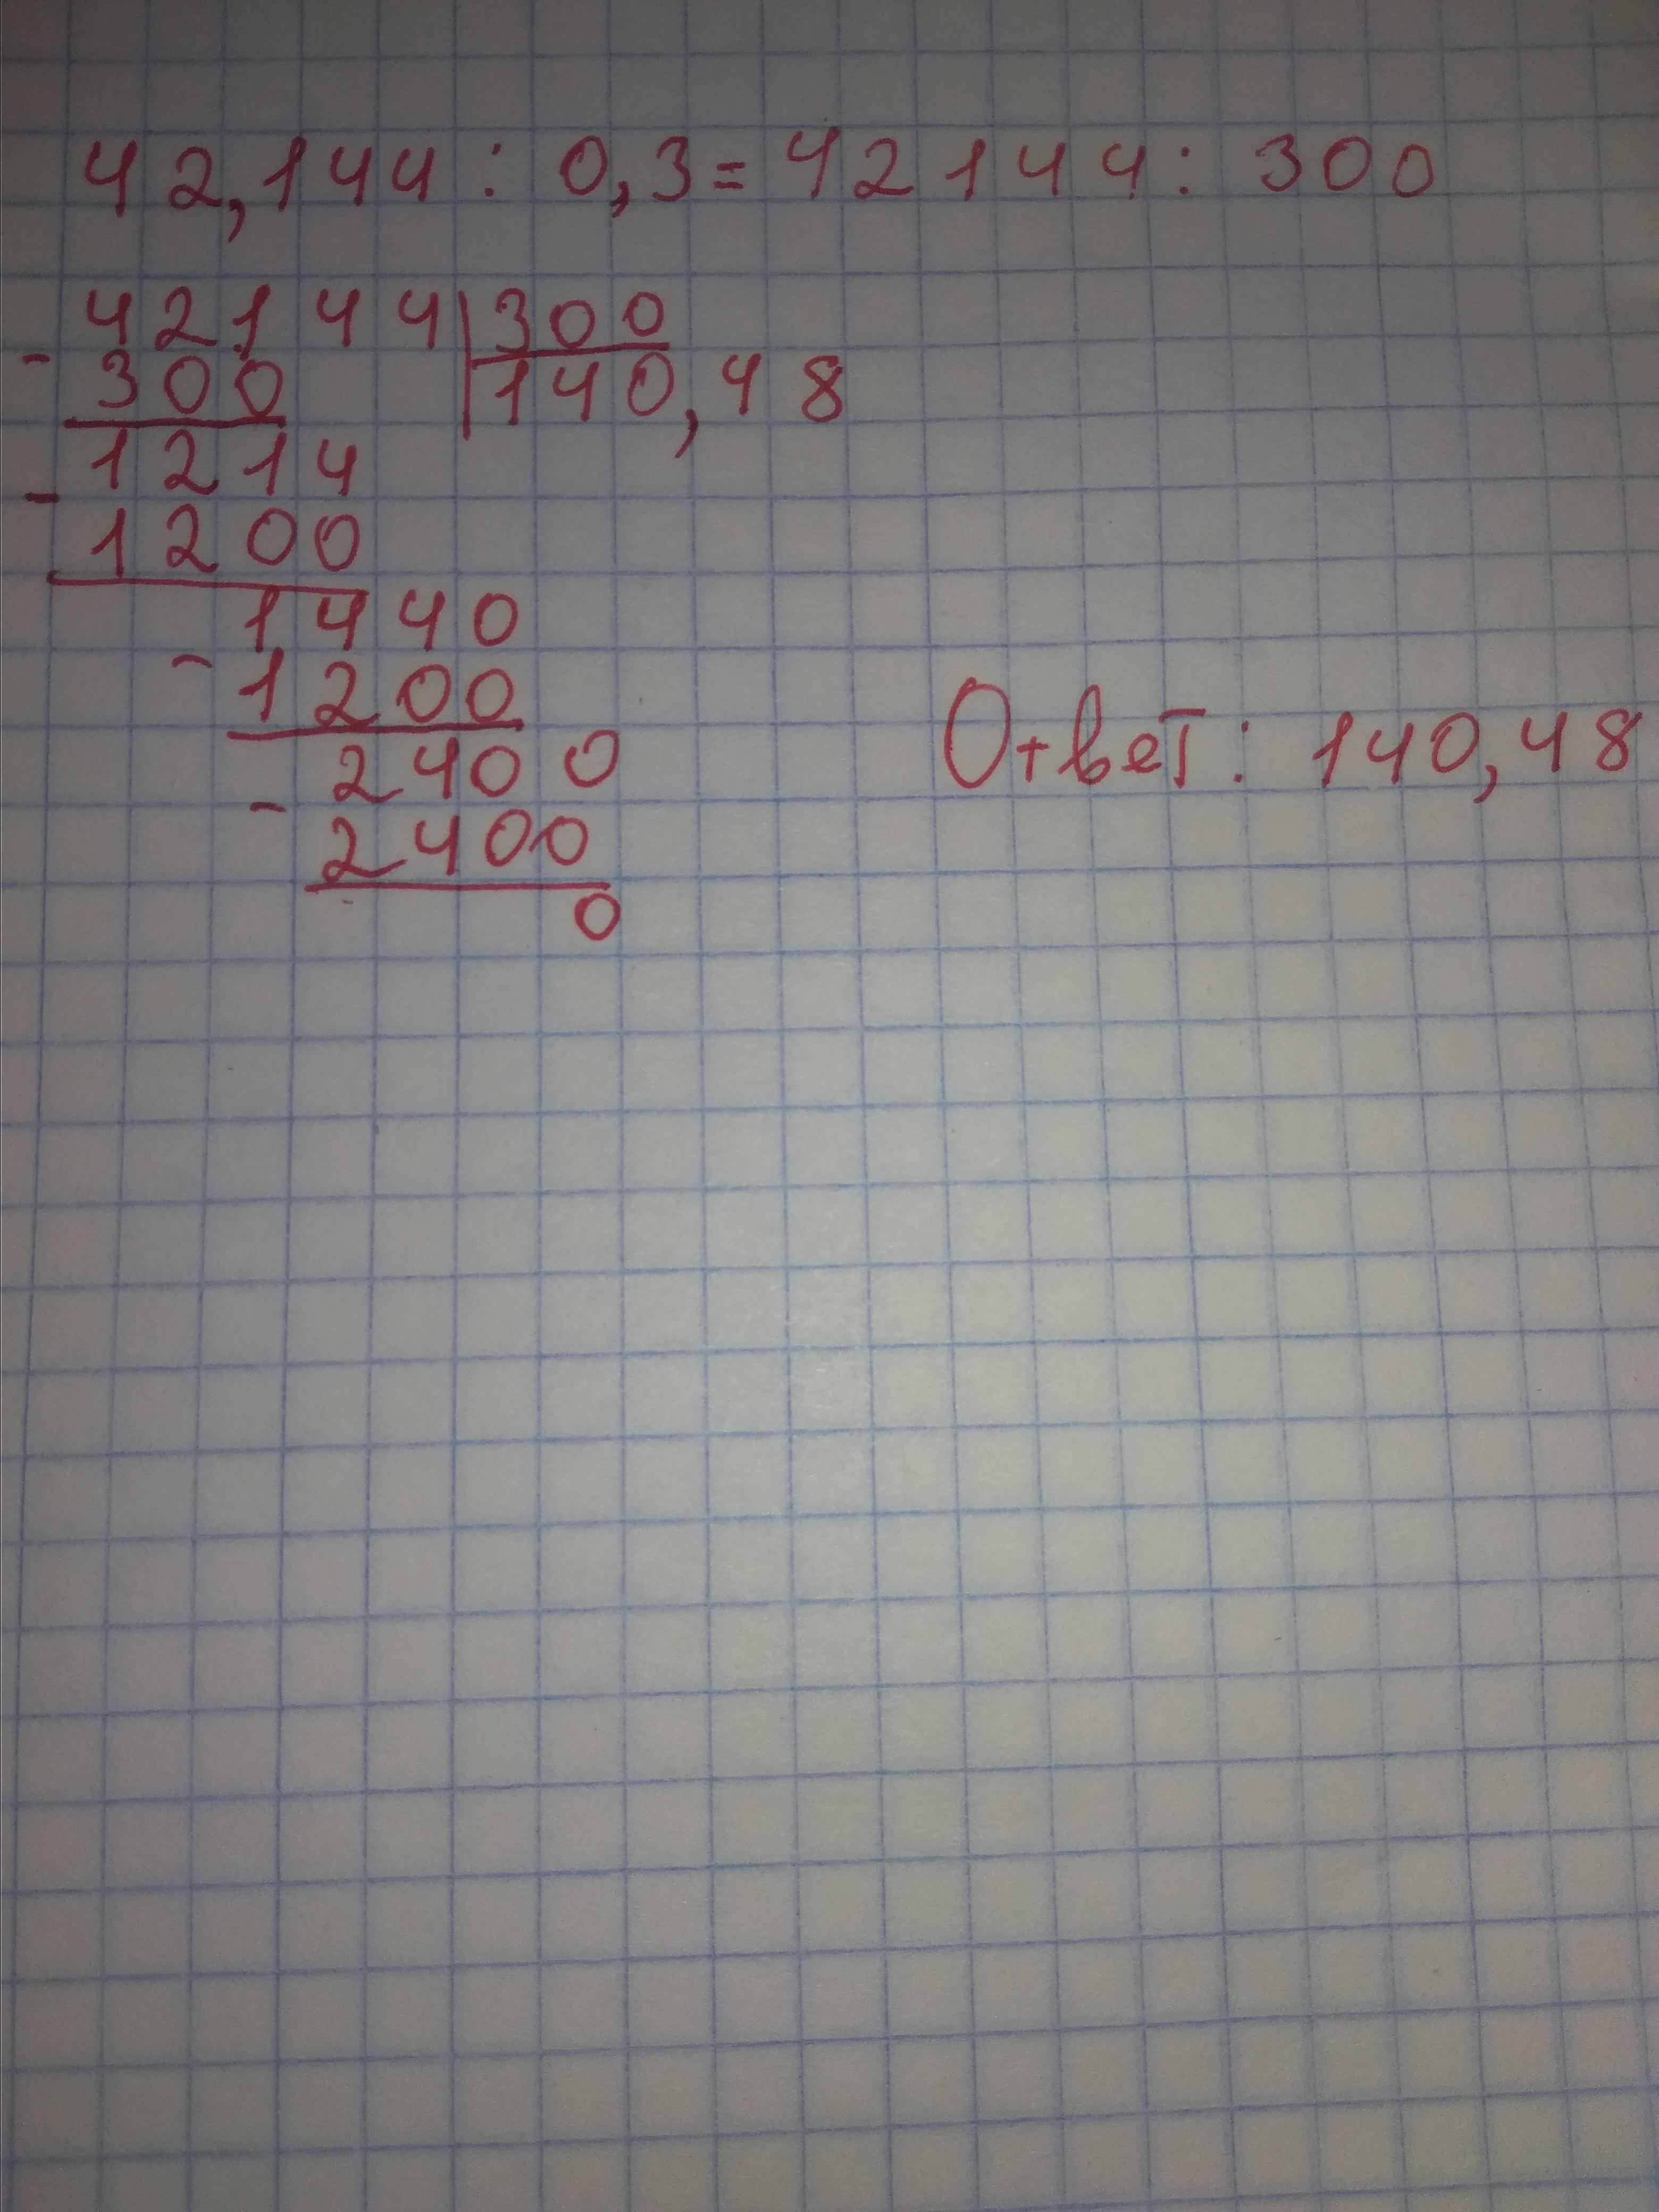 42,144 : 0,3 = 42144 : 300
42144 300
- 300 140,48
1214
- 1200
1440
- 1200
2400
- 2400
0
Ответ: 140,48